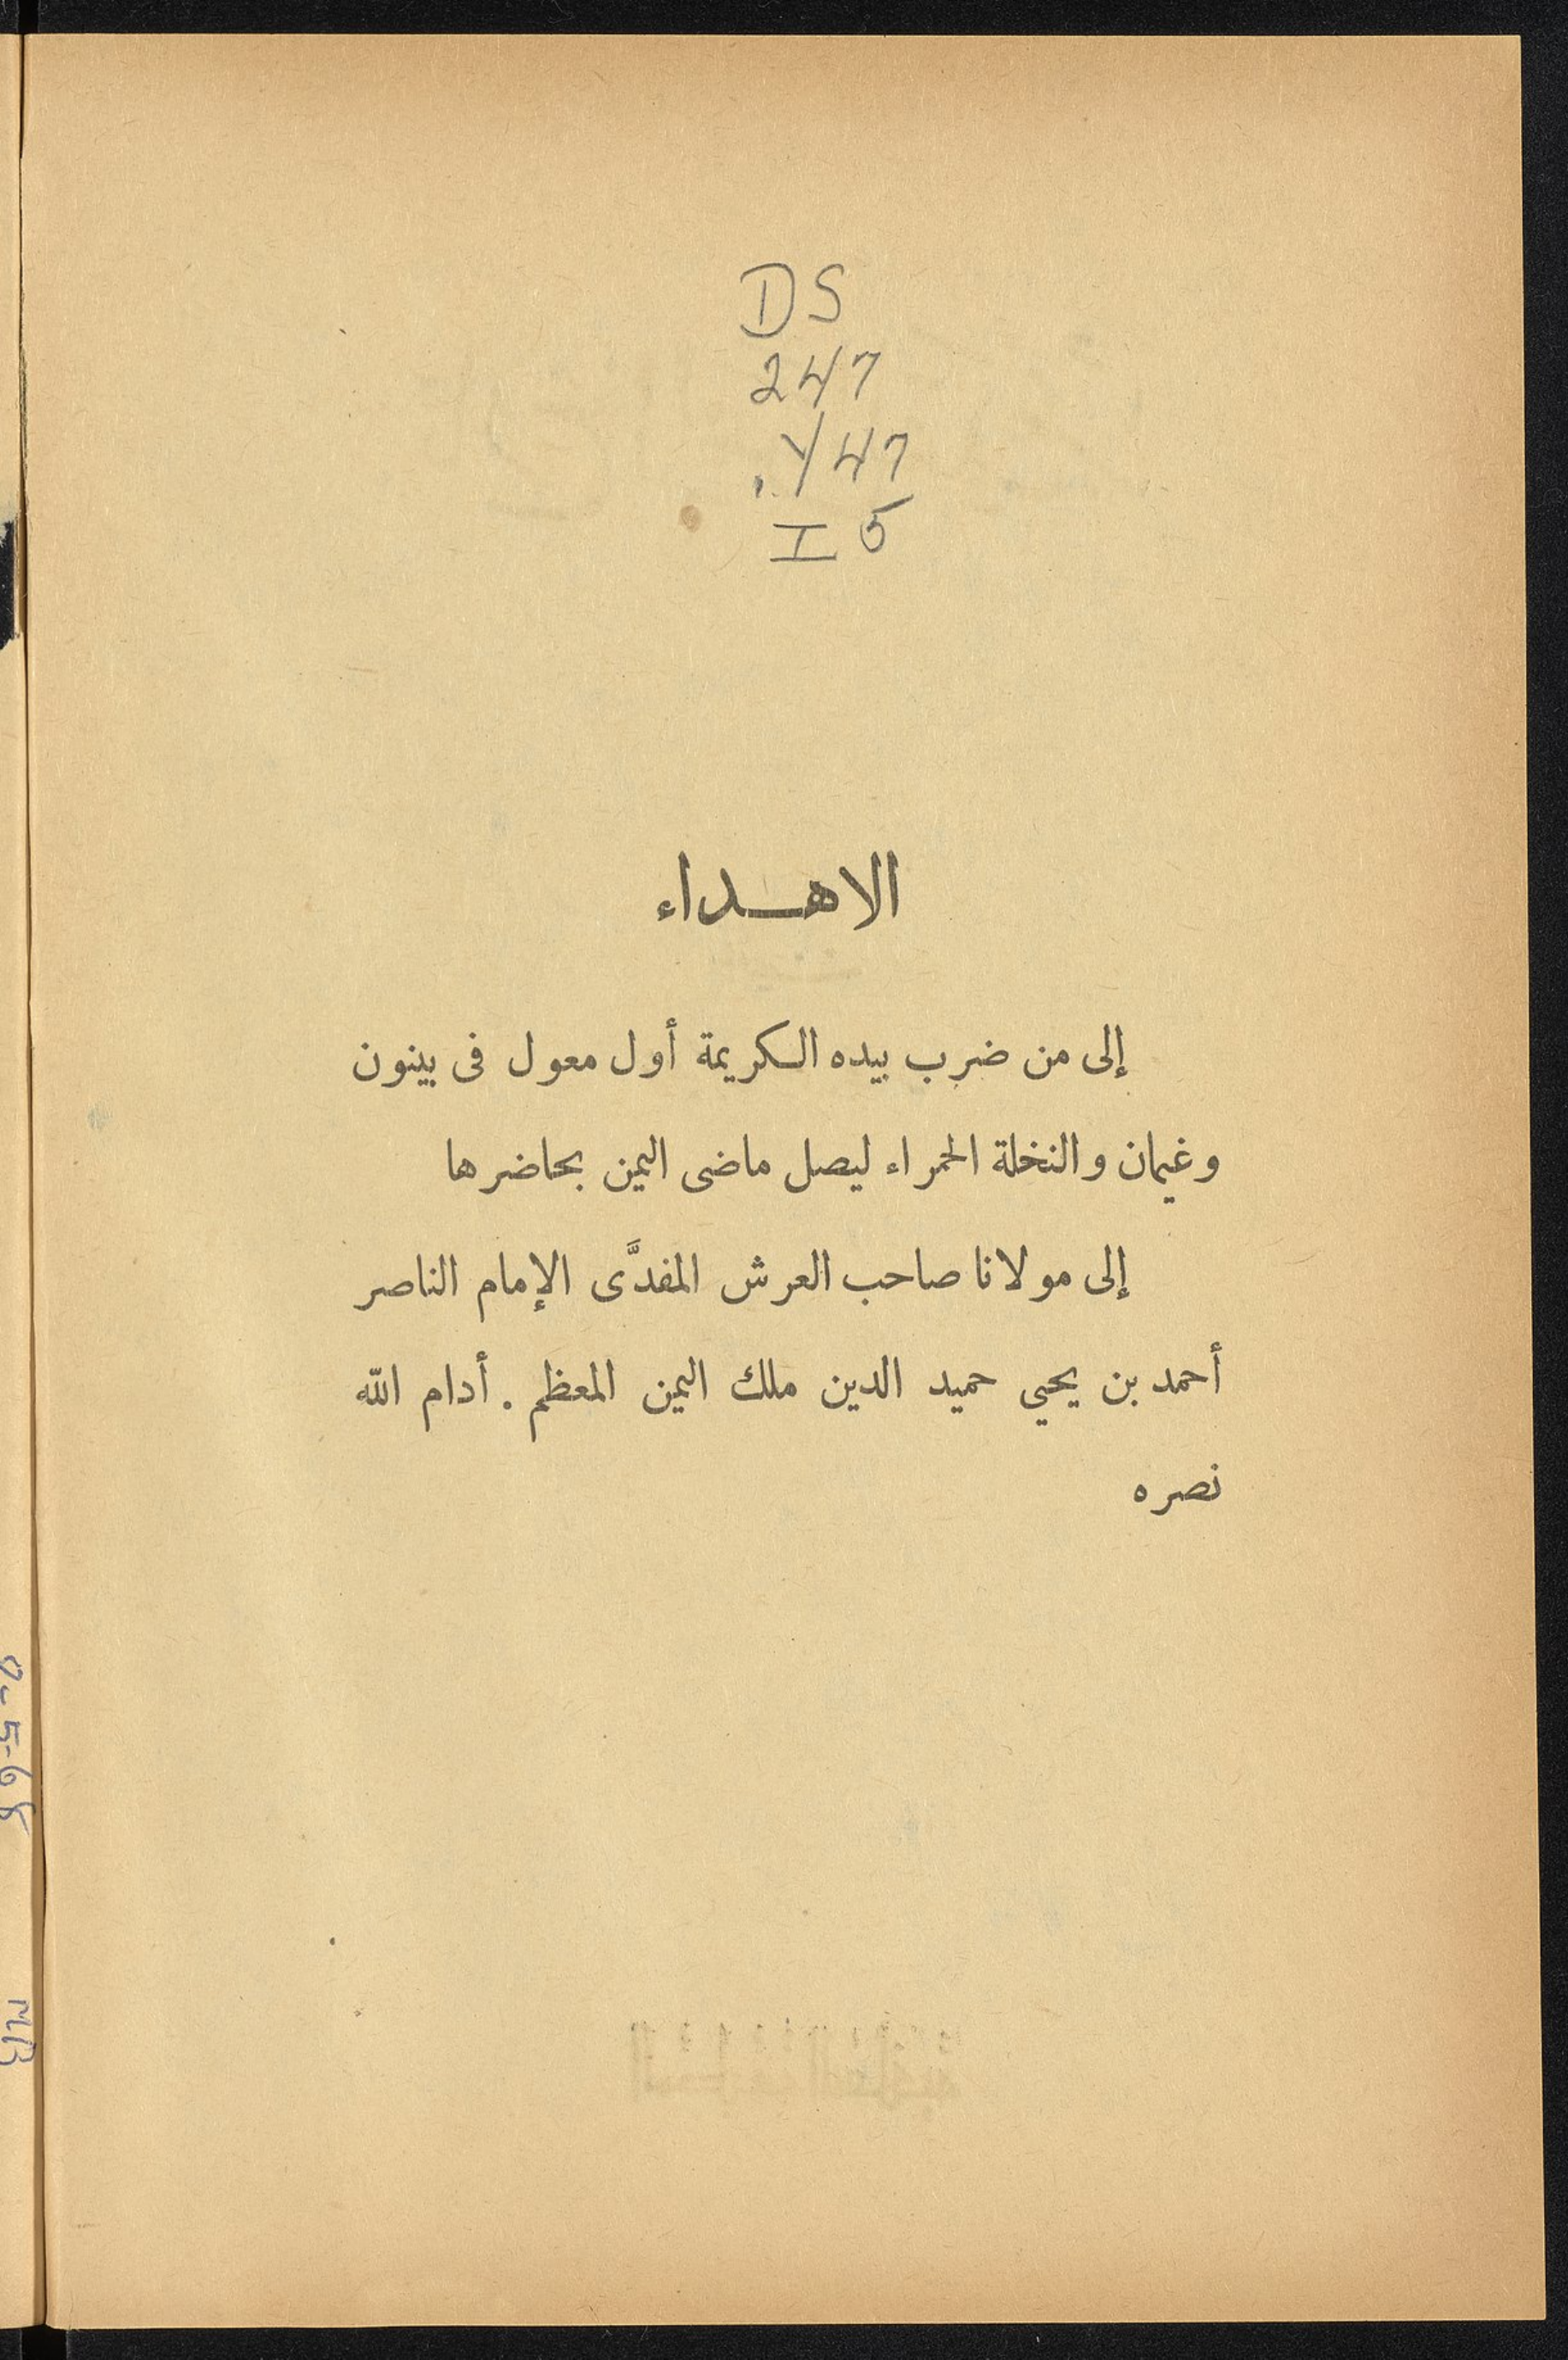 DS
247
.Y47
I5
الاهـــداء
إلى من ضرب بيده الكريمة أول معول فى بينون
وغيمان والنخلة الحمراء ليصل ماضى اليمن بحاضرها
إلى مولانا صاحب العرش المفدَّى الإمام الناصر
أحمد بن يحيي حميد الدين ملك اليمن المعظم . أدام الله
نصره